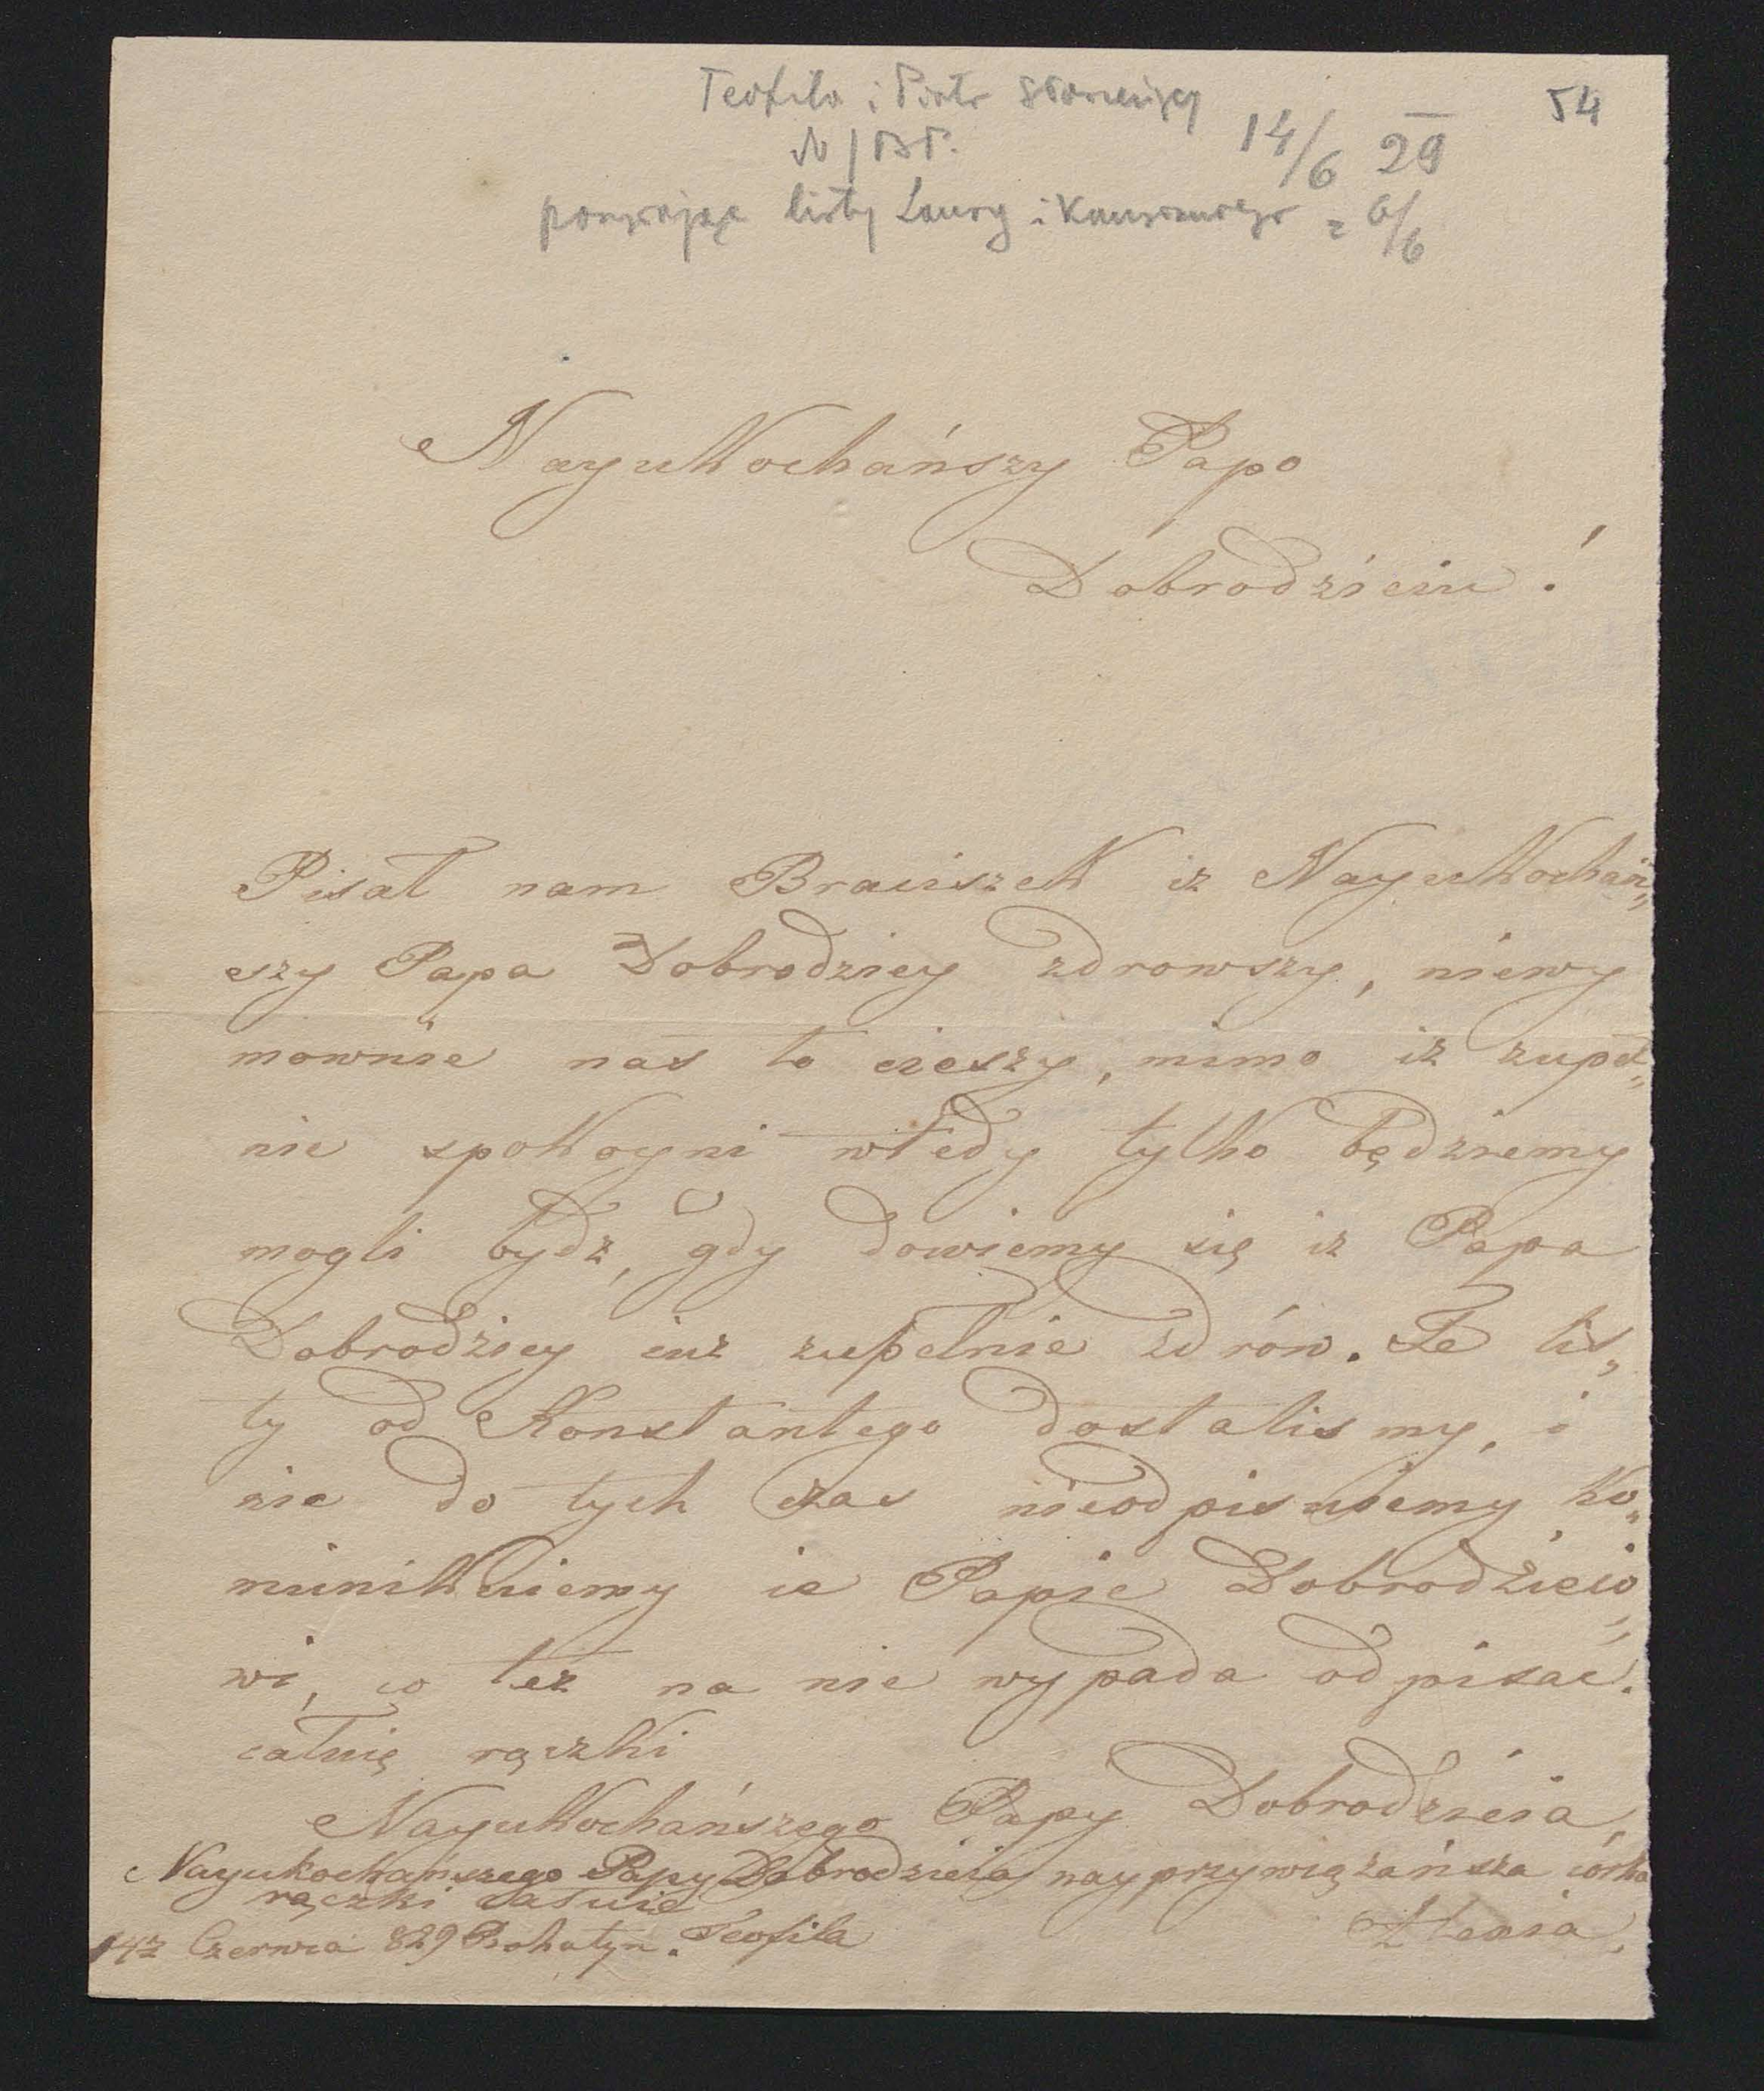 Teofila i Piotr
54
14/6 29
listy Laury i 6/6
Nayukochańszy Papo
Dobrodzieiu!
Pisał nam Braciszek iz Nayukochań„
szy Papa Dobrodziey zdrowszy, niewy
mownie nas to cieszy, mimo iz zupeł„
nie spokoyni wtedy tylko będziemy
mogli bydz, gdy dowiemy się iz Papa
Dobrodziey iuz zupełnie zdrów. Te lis„
ty od Konstantego dostalismy, i
nie do tych czas nieodpisuiemy ko„
munikuiemy ie Papie Dobrodzieio„
wi, co tez na nie wypada odpisać.
całuię rączki
Nayukochańszego Papy Dobrodzieia,
Nayukochańszego Papy Dobrodzieia nayprzywiązańsza corka
rączki całuie
14 Czerwca 829 Rohatyn. Teofila